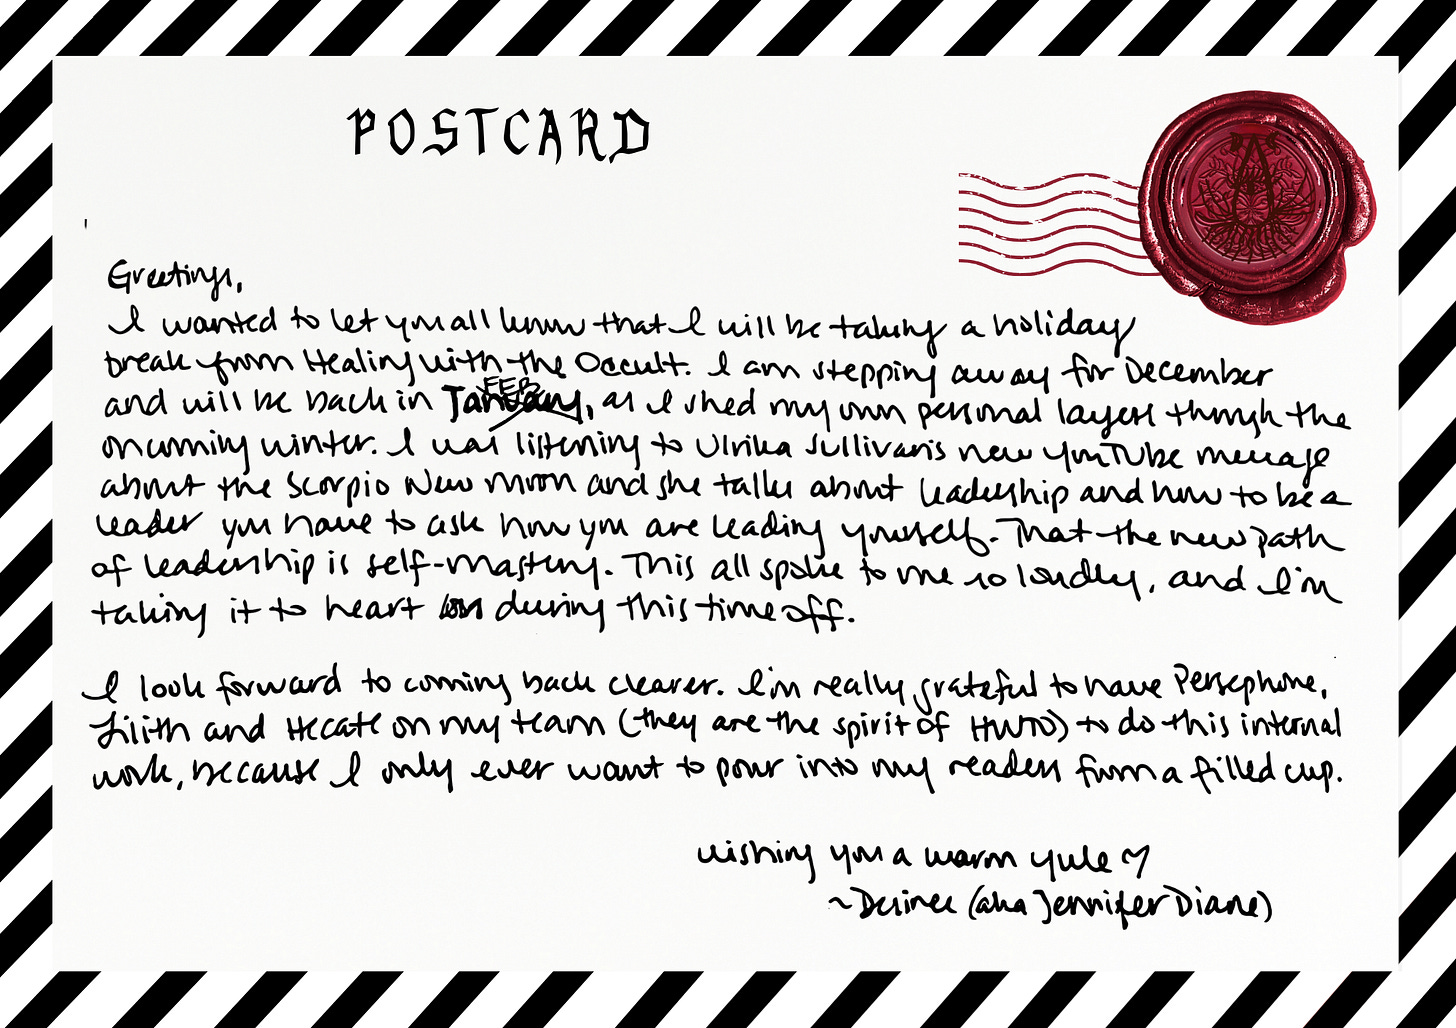 POSTCARD
Greetings,
I wanted to let you all know that I will be taking a holiday
break from Healing with the Occult. I am stepping away for December
and will be back in FEB January, as I shed my own personal layers through the
oncoming winter. I was listening to Ulrika Sullivan's new YouTube message
about the Scorpio New Moon and she talks about leadership and how to be a
leader you have to ask how you are leading yourself. That the new path
of leadership is self-mastery. This all spoke to me so loudly, and I'm
taking it to heart during this time off.
I look forward to coming back clearer. I'm really grateful to have Persephone,
Lilith and Hecate on my team (they are the spirit of HWTO) to do this internal
work, because I only ever want to pour into my readers from a filled cup.
wishing you a warm yule ♡
~Desiree (aka Jennifer Diane)